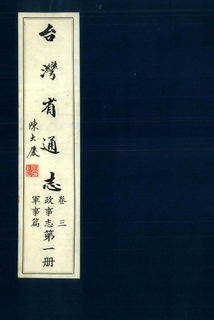 台灣省通志
陳大慶
卷三
政事志
軍事篇
第一册